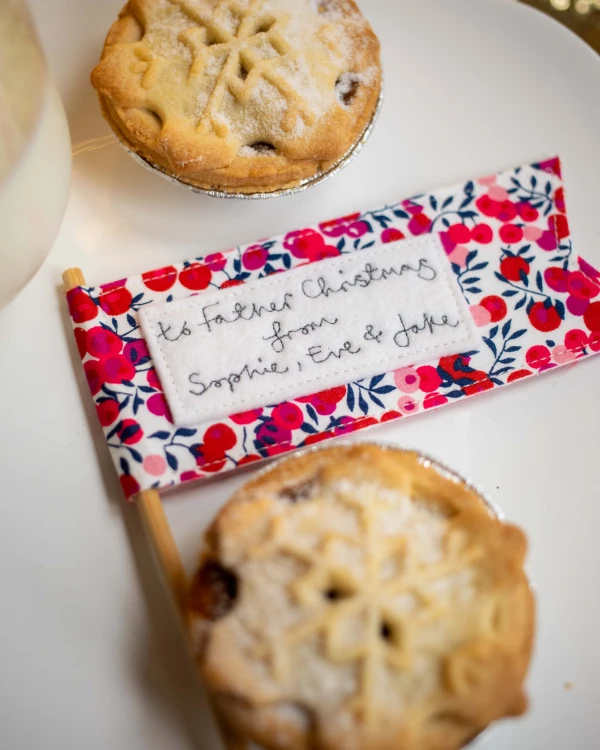 to Father Christmas
from
Sophie, Eve & Jake